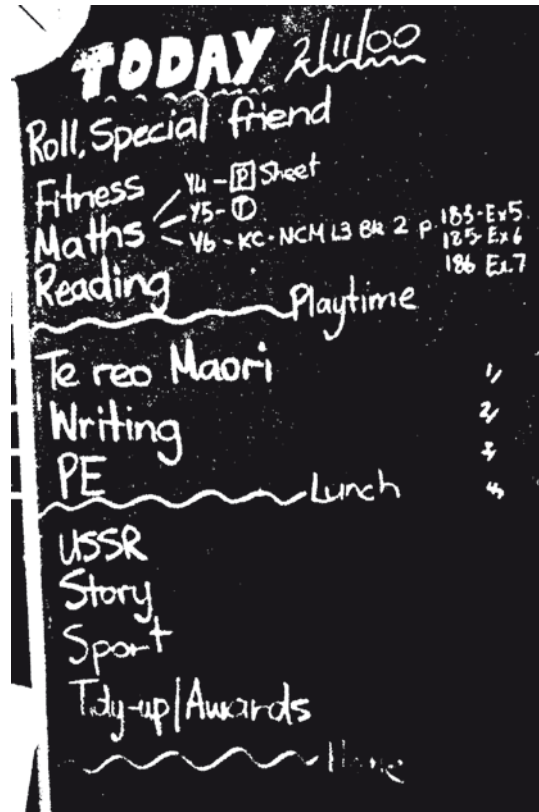 TODAY 2/11/00
Roll, Special friend
Fitness
Y4 - P Sheet
Maths Y5 - T
Y6 - KC - NCM L3 Bk 2 p. 183 - Ex 5
185 - Ex 6
186 Ex 7
Reading
Playtime
Te reo Maori
1/
Writing
2/
3/
PE
Lunch
4/
USSR
Story
Sport
Tidy-up/Awards
Home